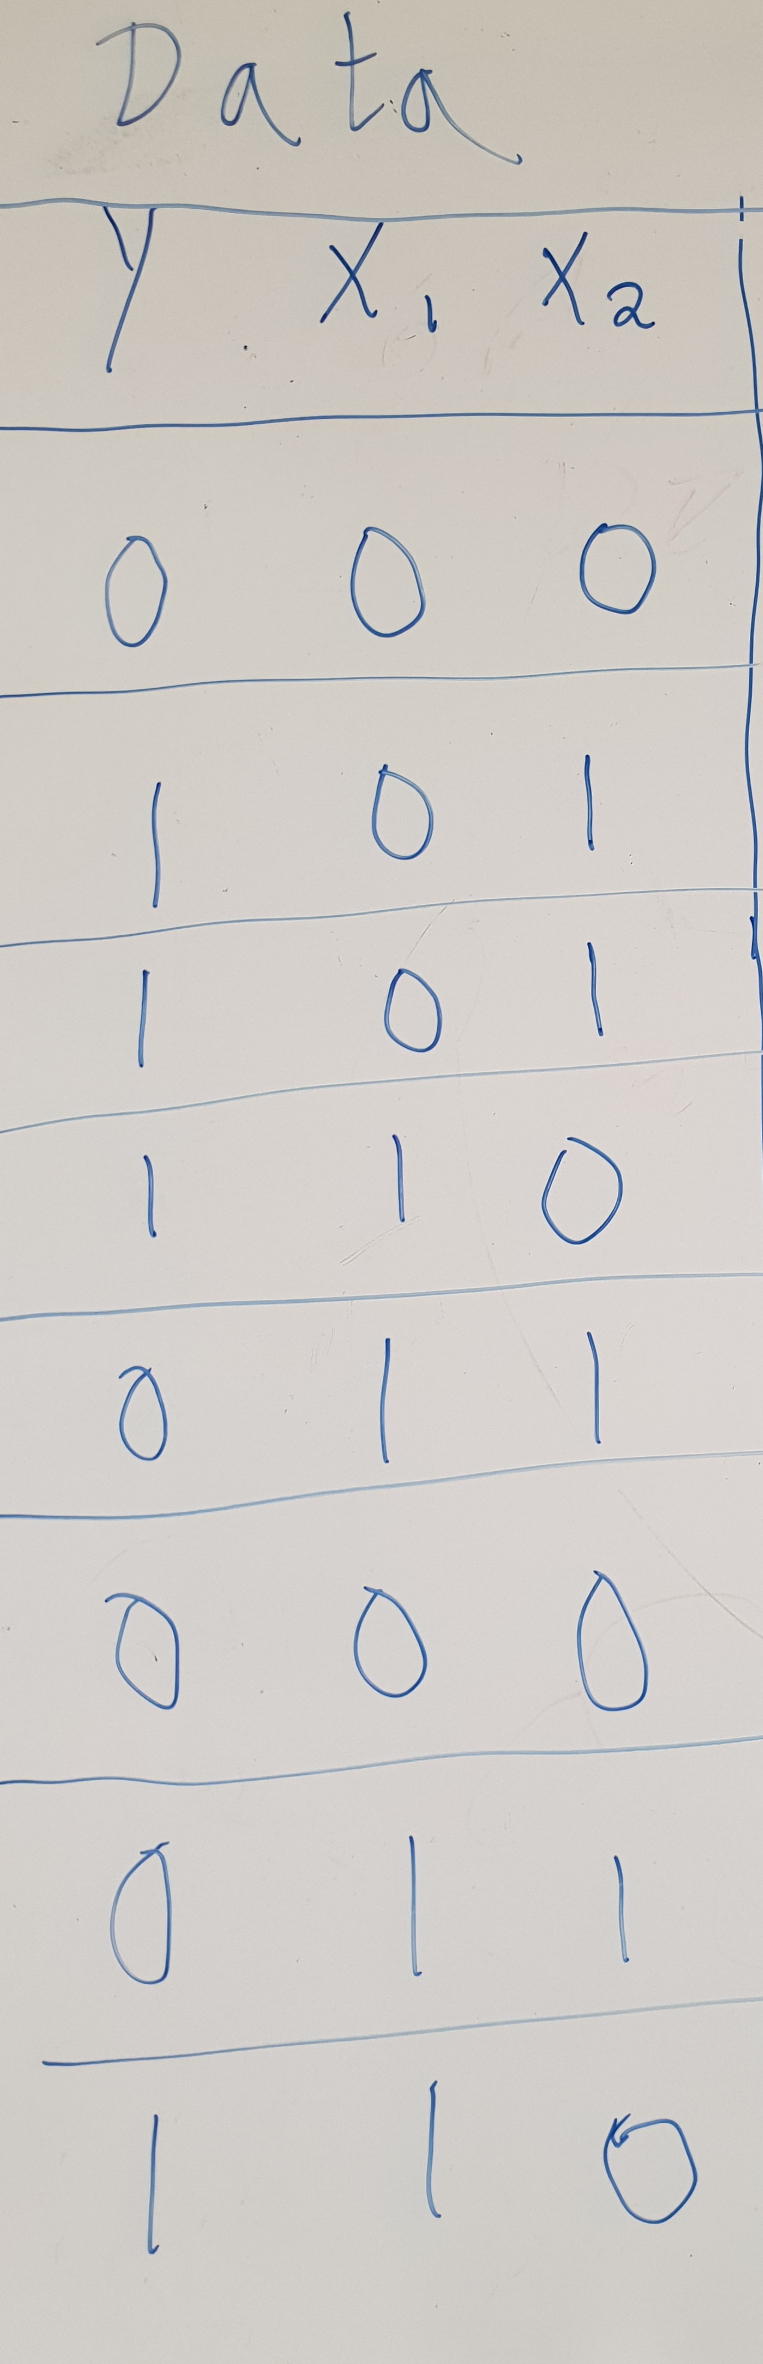 Data
Y X1 X2
0 0 0
1 0 1
1 0 1
1 1 0
0 1 1
0 0 0
0 1 1
1 1 0